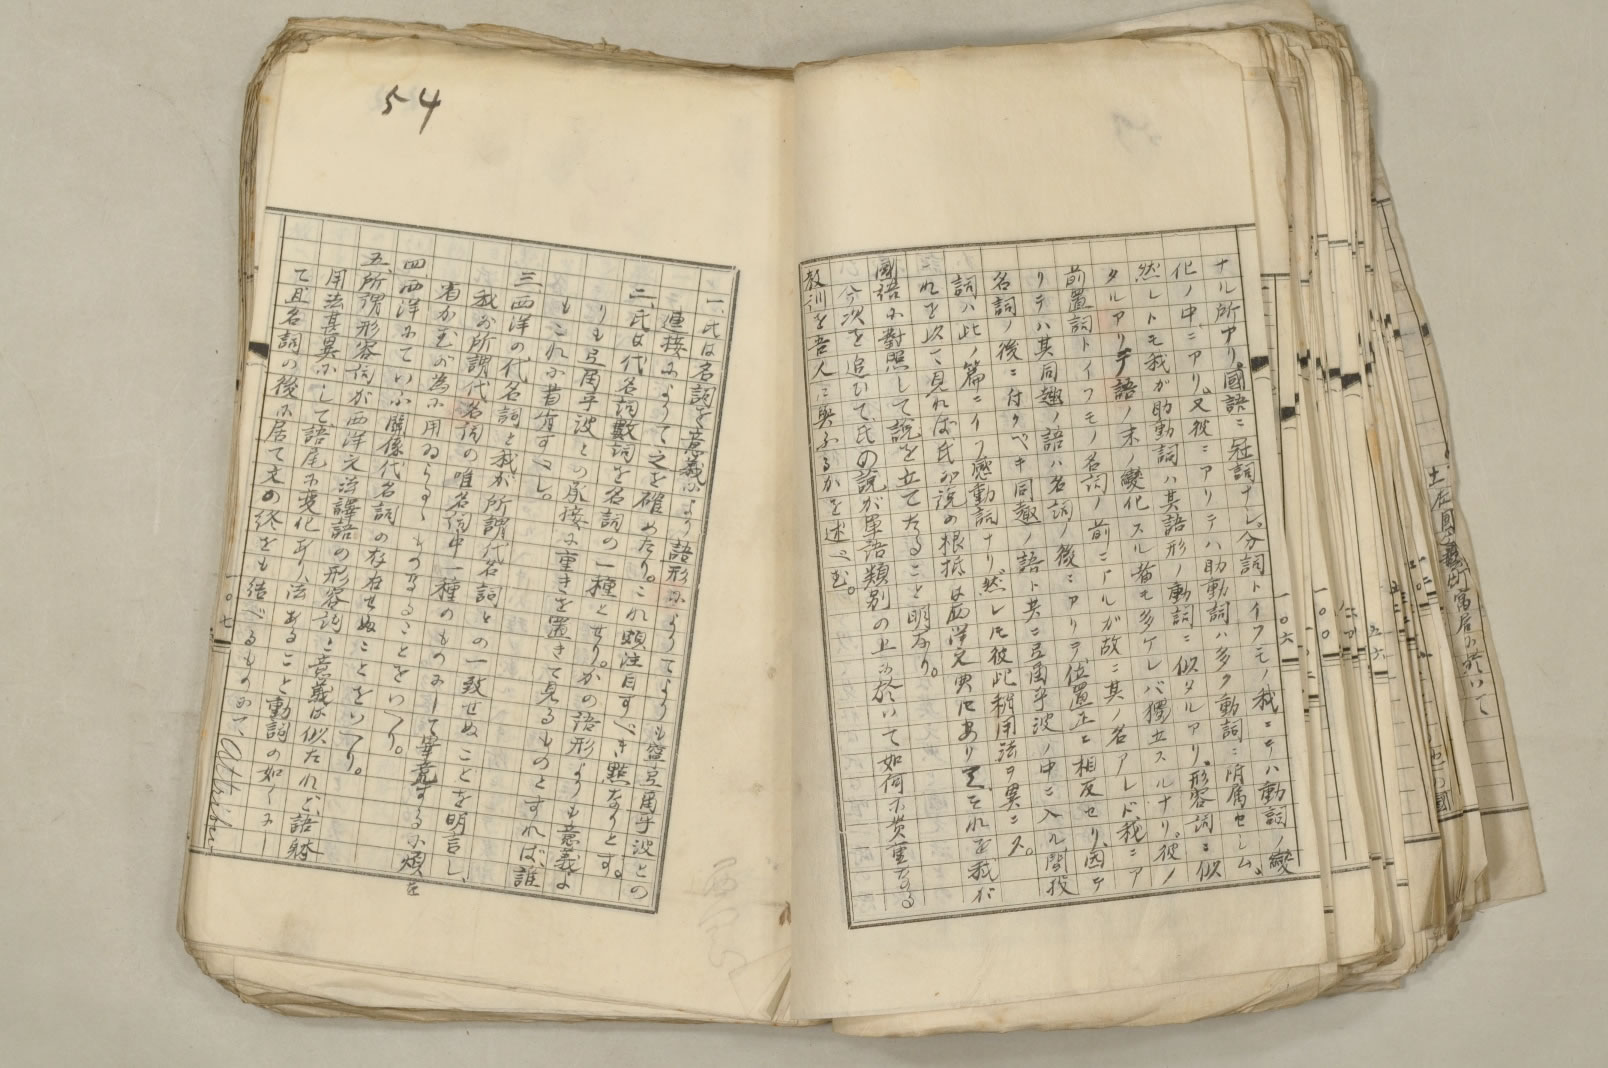 ナル所ナリ。國語ニ冠詞ナシ。分詞トイフモノ我ニテハ動詞ノ變
化ノ中ニアリ。又彼ニアリテハ助動詞ハ多ク動詞ニ附屬セシム。
然レトモ我ガ助動詞ハ其語形ノ動詞ニ似タルアリ。形容詞ニ似
タルアリテ語ノ末ノ變化スル者モ多ケレバ獨立スルナリ。彼ノ
前置詞トイフモノ名詞ノ前ニアルガ故ニ其ノ名アレド我ニア
リテハ其同趣ノ語ハ名詞ノ後ニアリテ位置正ニ相反セリ。因テ
名詞ノ後ニ付クベキ同趣ノ語ト共ニ弖爾乎波ノ中ニ入ル間投
詞ハ此ノ篇ニイフ感動詞ナリ然レトモ彼此稍用法ヲ異ニス。
これを以て見れば氏が説の根抵は西洋文典にありてそれを我が
國語に對照して説を立てたること明なり。
今次を追ひて氏の説が單語類別の上に於いて如何に貴重なる
教訓を吾人に與ふるかを述べむ。
一〇六
54
一、氏は名詞を意義により語形によりてよりも寧弖爾乎波との
連接によりて之を確めたり。これ頗注目すべき點なりとす。
二、氏は代名詞數詞を名詞の一種とせり。かの語形よりも意義よ
りも弖爾乎波との承接に重きを置きて見るものとすれば、誰
もこれに首肯すべし。
三、西洋の代名詞と我が所謂代名詞との一致せぬことを明言し、
我が所謂代名詞の唯名詞中一種のものにして畢竟するに煩を
省かむが為に用ゐらるゝものなることをいへり。
四、西洋にていふ關係代名詞の存在せぬことをいへり。
五、所謂形容詞が西洋文法譯語の形容詞と意義は似たれど、語躰
用法甚異にして語尾に変化あり、法あること動詞の如くにし
て且名詞の後に居て文の終をも結べるものにて、
一〇七